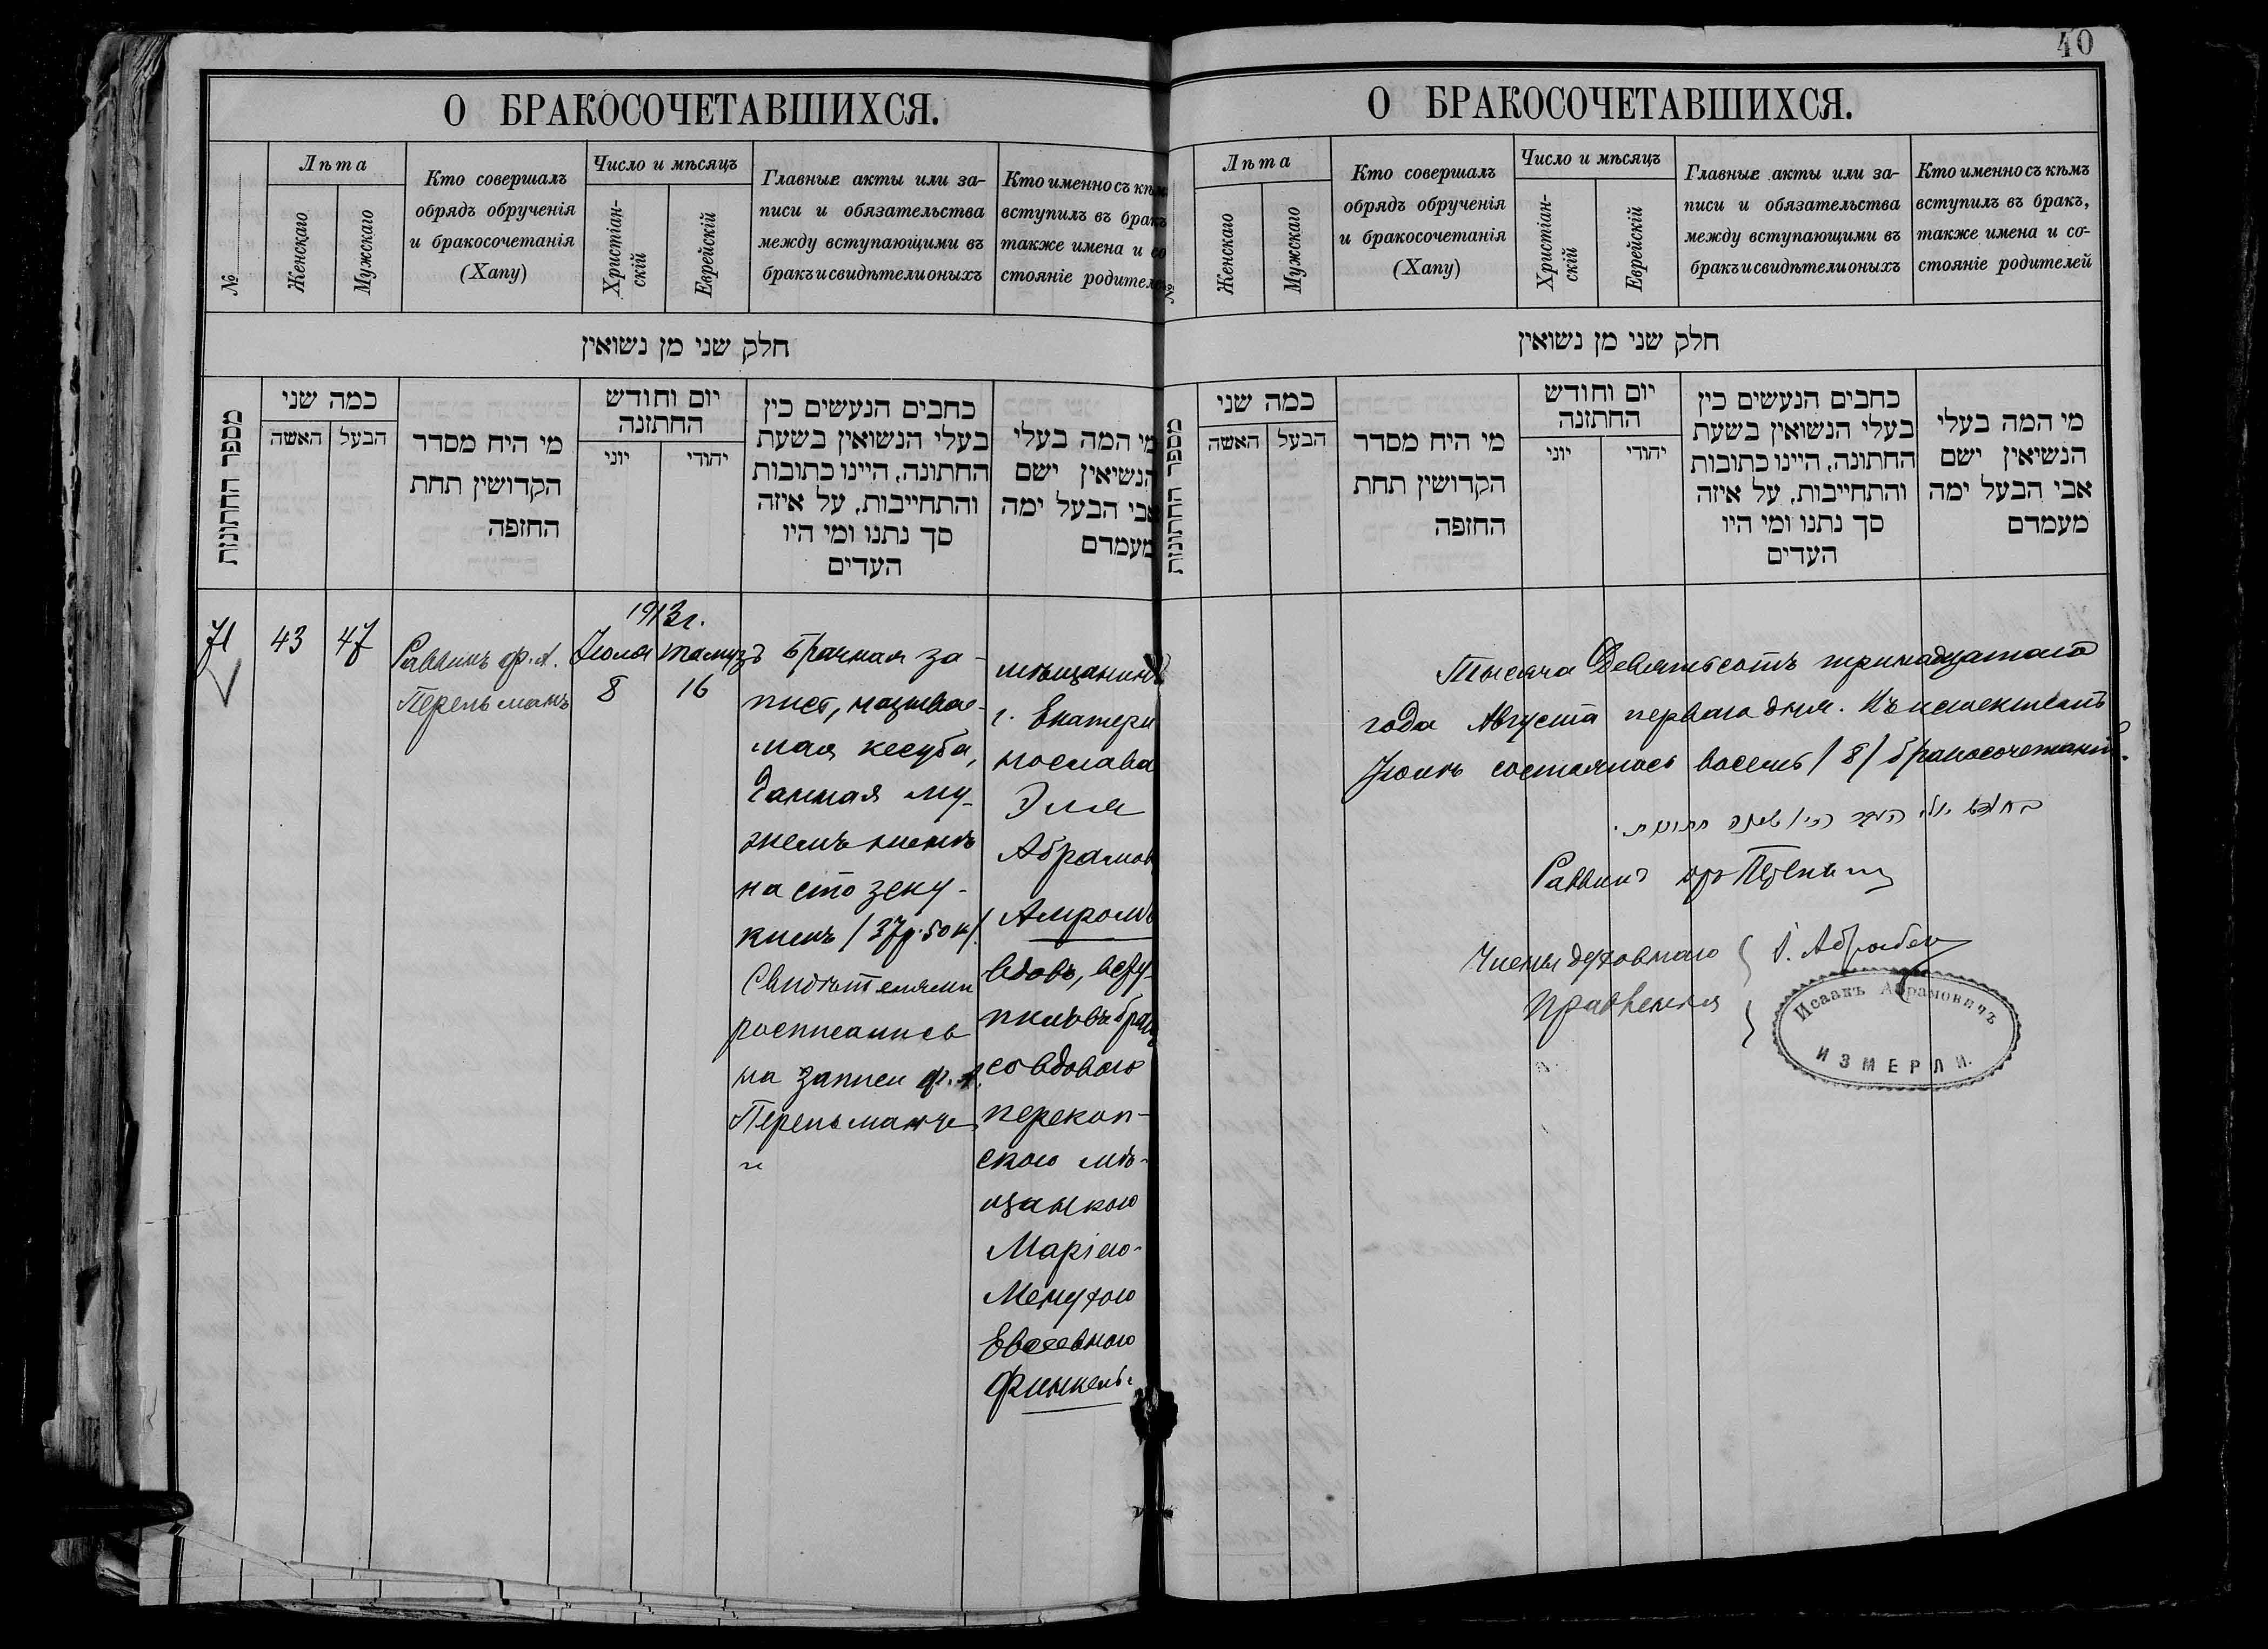 40
О БРАКОСОЧЕТАВШИХСЯ.
№
Лѣта
Женскаго
Мужскаго
Кто совершалъ
обрядъ обрученія
и бракосочетанія
(Хапу)
Число и мѣсяцъ
Христіан-
скій
Еврейскій
Главные акты или за-
писи и обязательства
между вступающими въ
бракъ и свидѣтели оныхъ
Кто именно съ кѣмъ
вступилъ въ бракъ
также имена и со
стояніе родителей
חלק שני מן נשואין
מספר החתונות
כמה שני
האשה
הבעל
מי היח מסדר
הקדושין תחת
החזפה
יום וחודש
החתזנה
יוני
יהודי
כחבים הנעשים כין
בעלי הנשואין בשעת
החתונה, היינו כתובות
והתחייבות, על איזה
סך נתנו ומי היו
העדים
מי המה בעלי
הנשיאין ישם
אבי הבעל ימה
מעמדם
71
43
47
Раввинъ ф. А.
Перельманъ
1913 г.
Іюля
8
тамузъ
16
Брачная за-
пись, называе-
мая кесуба,
данная му-
жемъ женѣ
на сто зеку-
кимъ (37 р. 50 к).
Свидѣтелями
росписались
на записи ф. А.
Перельманъ
и
мѣщанинъ
г. Екатери
нослава
Эля
Абрамов
Амромъ
вдовъ, всту-
пилъ въ бракъ
со вдовою
перекоп-
скою мѣ-
щанкою
Маріею-
Менухою
Евсеевною
Финкель.
О БРАКОСОЧЕТАВШИХСЯ.
№
Лѣта
Женскаго
Мужскаго
Кто совершалъ
обрядъ обрученія
и бракосочетанія
(Хапу)
Число и мѣсяцъ
Христіан-
скій
Еврейскій
Главные акты или за-
писи и обязательства
между вступающими въ
бракъ и свидѣтели оныхъ
Кто именно съ кѣмъ
вступилъ въ бракъ,
также имена и со-
стояніе родителей
חלק שני מן נשואין
מספר החתונות
כמה שני
האשה
הבעל
מי היח מסדר
הקדושין תחת
החזפה
יום וחודש
החתזנה
יוני
יהודי
כחבים הנעשים כין
בעלי הנשואין בשעת
החתונה, היינו כתובות
והתחייבות, על איזה
סך נתנו ומי היו
העדים
מי המה בעלי
הנשיאין ישם
אבי הבעל ימה
מעמדם
Тысяча Девятьсотъ тринадцатаго
года Августа перваго дня. Въ истекшемъ
Іюлѣ состоялось восемь (8) бракосочетаній.
שמנה חתונות.
Раввинъ
Члены духовнаго
Правленія
Исаакъ Абрамовичъ
ИЗМЕРЛИ.